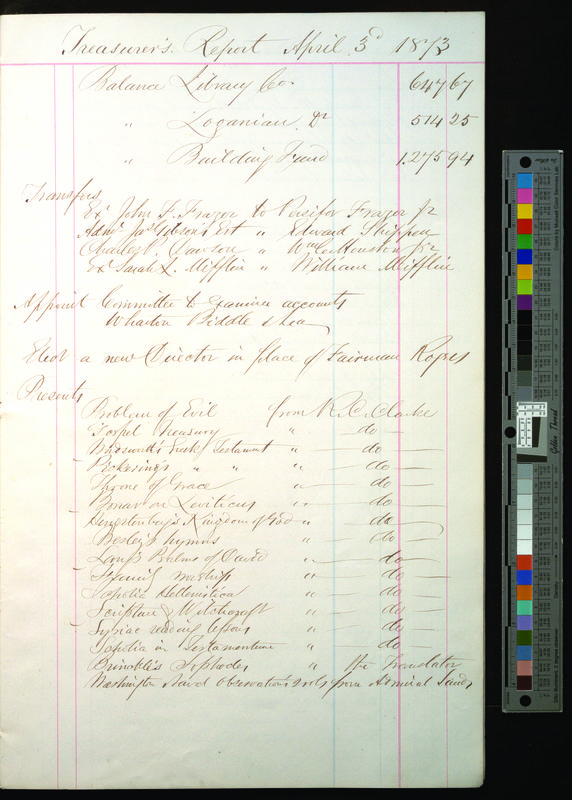 Treasurer's Report April 3d 1873
Balance Library Co. 647 67
" Loganian Dr 514 25
" Building Fund 1.275 94
Transfers
Exr John F. Frazer to Persifor Frazer Jr
Admr Jas Gibson's Est " Edward Shippen
Charles P. Dawson " Wm C. Houston Jr
Exr Sarah L. Mifflin " William Mifflin
Appoint Committee to examine accounts
Wharton Biddle & Lea
Elect a new Director in place of Fairman Rogers
Presents
Problem of Evil from R. C. Clarke
Gospel Treasury " do
Wordsworth's Greek Testament " do
Pickering's " " do
Throne of Grace " do
Bonar on Leviticus " do
Hengstenberg's Kingdom of God " do
Wesley's hymns " do
Lang's Psalms of David " do
Family worship " do
Hellenistica " do
Scripture & Witchcraft " do
Syriac reading lessons " do
in Testamentum " do
Brimble's Sophocles " the Translator
Washington Naval Observations vols from Admiral Sands